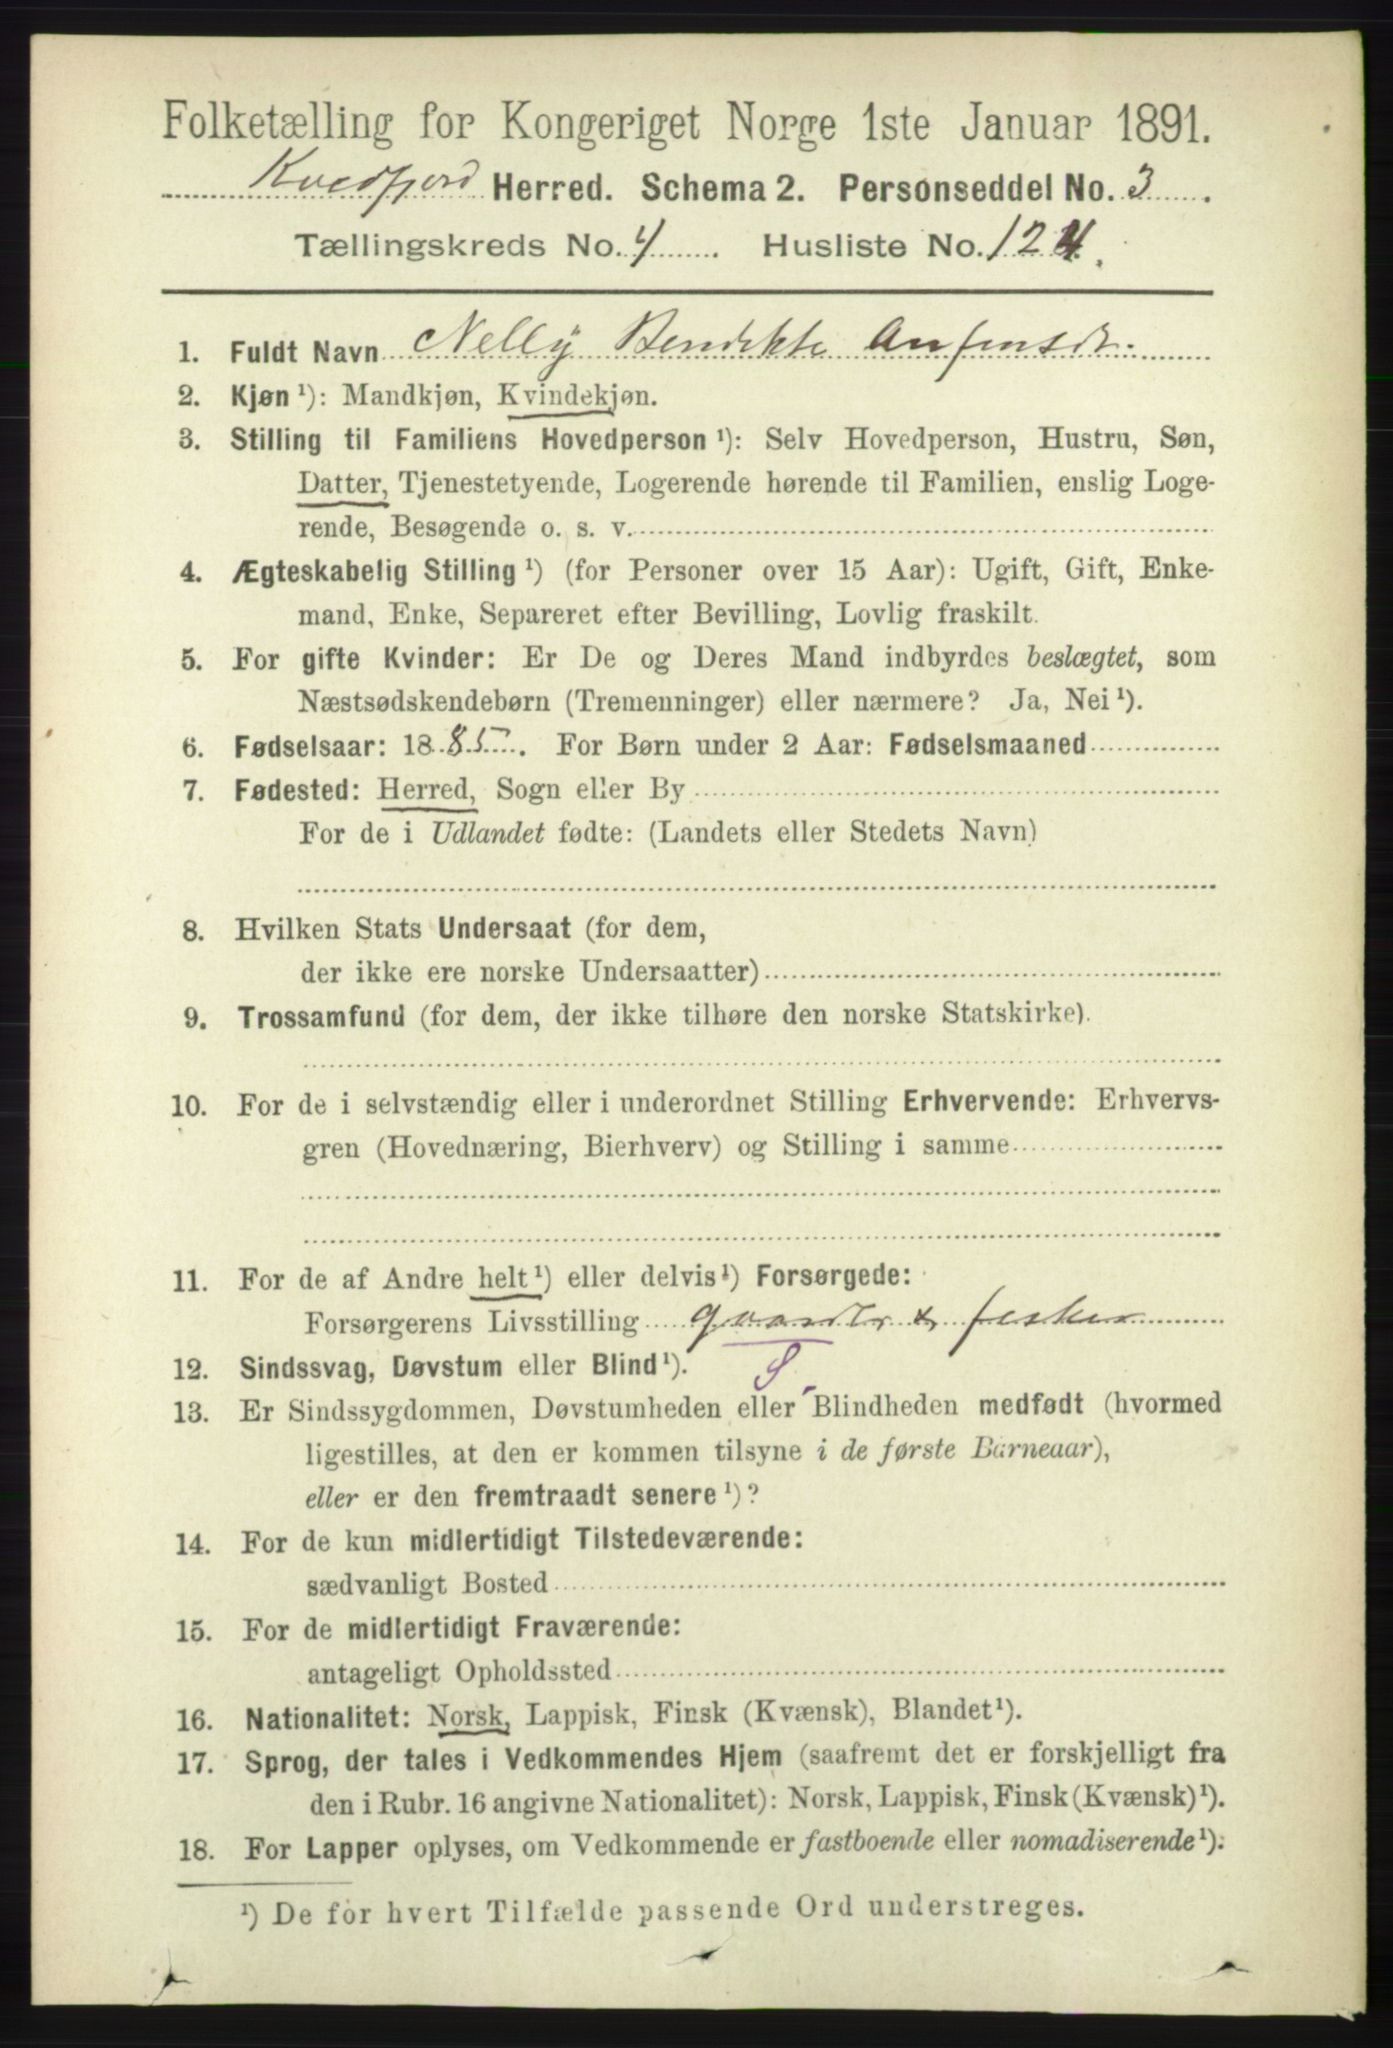 Folketælling for Kongeriget Norge 1ste Januar 1891.
Kvedfjord Herred. Schema 2. Personseddel No. 3
Tællingskreds No. 4 Husliste No. 124.
1. Fuldt Navn Nelly Bendikte Anfensdr.
2. Kjøn ¹): Mandkjøn, Kvindekjøn.
3. Stilling til Familiens Hovedperson ¹): Selv Hovedperson, Hustru, Søn,
Datter, Tjenestetyende, Logerende hørende til Familien, enslig Loge-
rende, Besøgende o. s. v.
4. Ægteskabelig Stilling ¹) (for Personer over 15 Aar): Ugift, Gift, Enke-
mand, Enke, Separeret efter Bevilling, Lovlig fraskilt.
5. For gifte Kvinder: Er De og Deres Mand indbyrdes beslægtet, som
Næstsødskendebørn (Tremenninger) eller nærmere? Ja, Nei ¹).
6. Fødselsaar: 1885. For Børn under 2 Aar: Fødselsmaaned
7. Fødested: Herred, Sogn eller By
For de i Udlandet fødte: (Landets eller Stedets Navn)
8. Hvilken Stats Undersaat (for dem,
der ikke ere norske Undersaatter)
9. Trossamfund (for dem, der ikke tilhøre den norske Statskirke).
10. For de i selvstændig eller i underordnet Stilling Erhvervende: Erhvervs-
gren (Hovednæring, Bierhverv) og Stilling i samme
11. For de af Andre helt ¹) eller delvis ¹) Forsørgede:
Forsørgerens Livsstilling gaardbr & fisker
12. Sindssvag, Døvstum eller Blind ¹). S.
13. Er Sindssygdommen, Døvstumheden eller Blindheden medfødt (hvormed
ligestilles, at den er kommen tilsyne i de første Barneaar),
eller er den fremtraadt senere ¹)?
14. For de kun midlertidigt Tilstedeværende:
sædvanligt Bosted
15. For de midlertidigt Fraværende:
antageligt Opholdssted
16. Nationalitet: Norsk, Lappisk, Finsk (Kvænsk), Blandet ¹).
17. Sprog, der tales i Vedkommendes Hjem (saafremt det er forskjelligt fra
den i Rubr. 16 angivne Nationalitet): Norsk, Lappisk, Finsk (Kvænsk) ¹).
18. For Lapper oplyses, om Vedkommende er fastboende eller nomadiserende ¹):
¹) De for hvert Tilfælde passende Ord understreges.